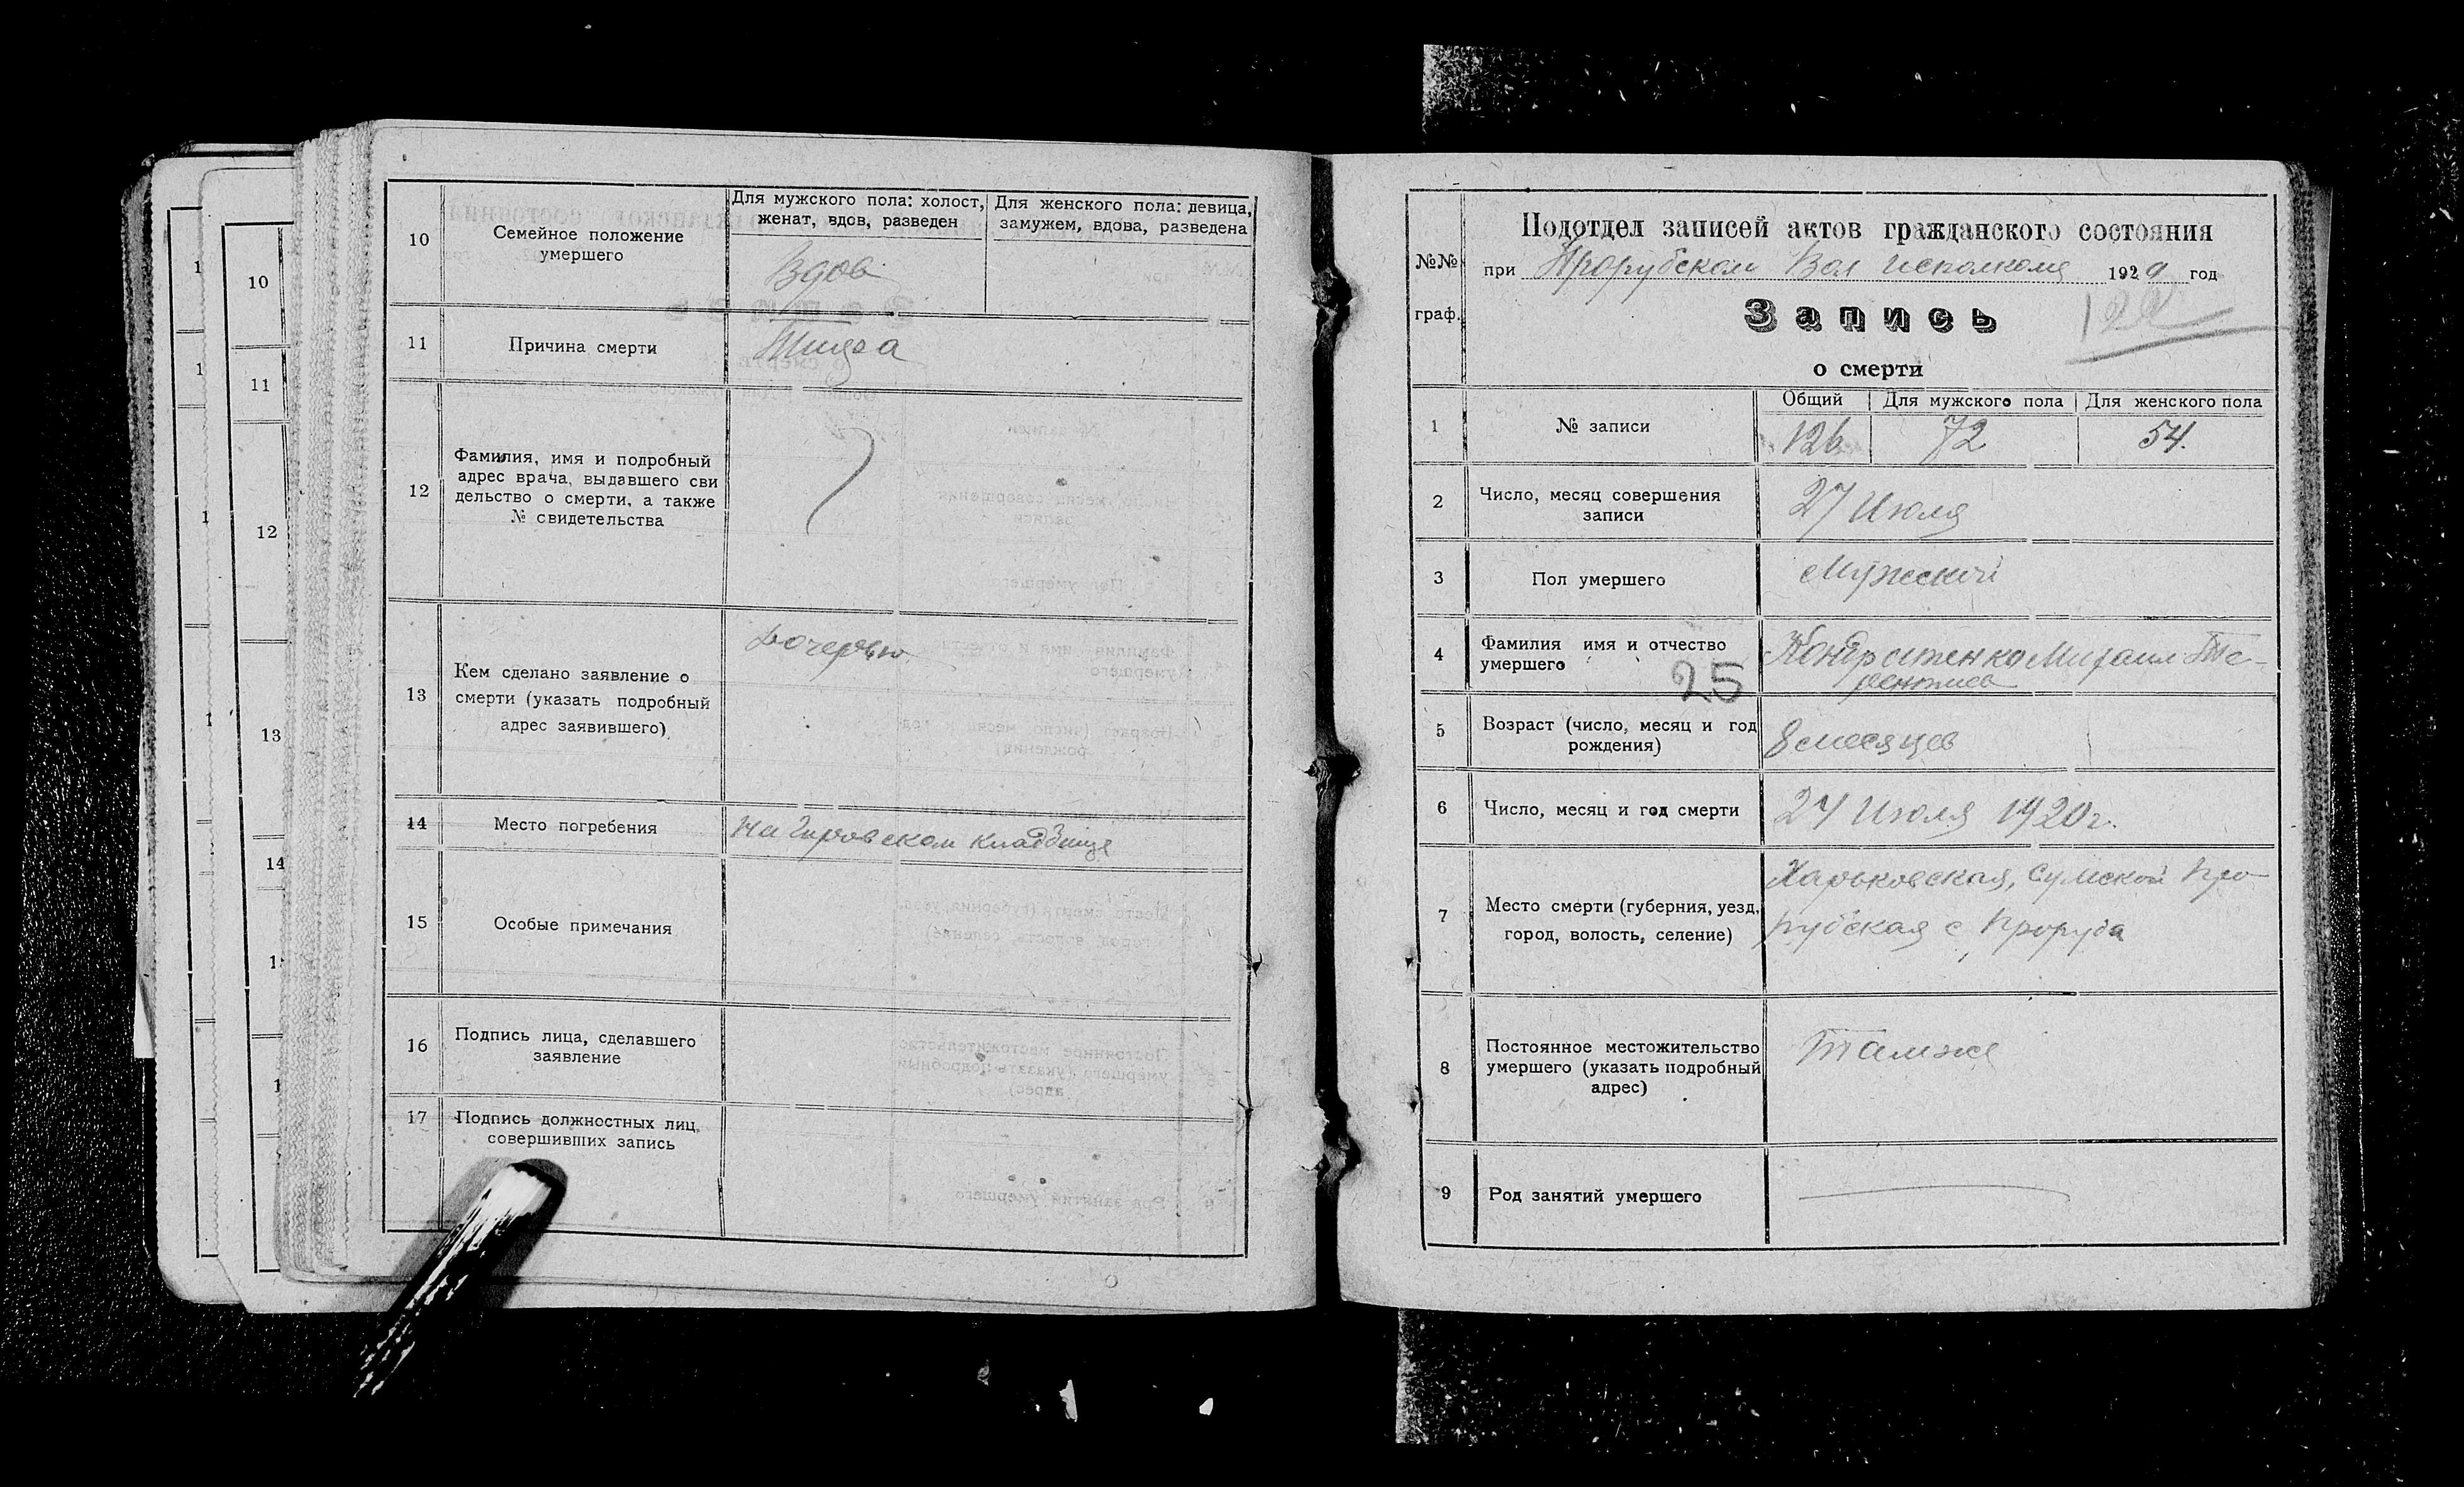 10
Семейное положение
умершего
Для мужского пола: холост,
женат, вдов, разведен
Для женского пола: девица,
замужем, вдова, разведена
Вдов
11
Причина смерти
12
Фамилия, имя и подробный
адрес врача, выдавшего сви
дельство о смерти, а также
№ свидетельства
13
Кем сделано заявление о
смерти (указать подробный
адрес заявившего)
Дочерью
14
Место погребения
На Гировском кладбище
15
Особые примечания
16
Подпись лица, сделавшего
заявление
17
Подпись должностных лиц,
совершивших запись
10
11
12
13
14
№№
граф.
Подотдел записей актов гражданского состояния
при Прорубском Вол исполкоме 1920 год
Запись
о смерти
1
№ записи
Общий
Для мужского пола
Для женского пола
126
72
54.
2
Число, месяц совершения
записи
27 Июля
3
Пол умершего
Мужской
4
Фамилия имя и отчество
умершего
25
Кондратенко Михаил Те-
рентиев
5
Возраст (число, месяц и год
рождения)
8 месяцев
6
Число, месяц и год смерти
24 Июля 1920 г.
7
Место смерти (губерния, уезд,
город, волость, селение)
Харьковская, Сумской Про-
рубская с Проруба
8
Постоянное местожительство
умершего (указать подробный
адрес)
Тамже
9
Род занятий умершего